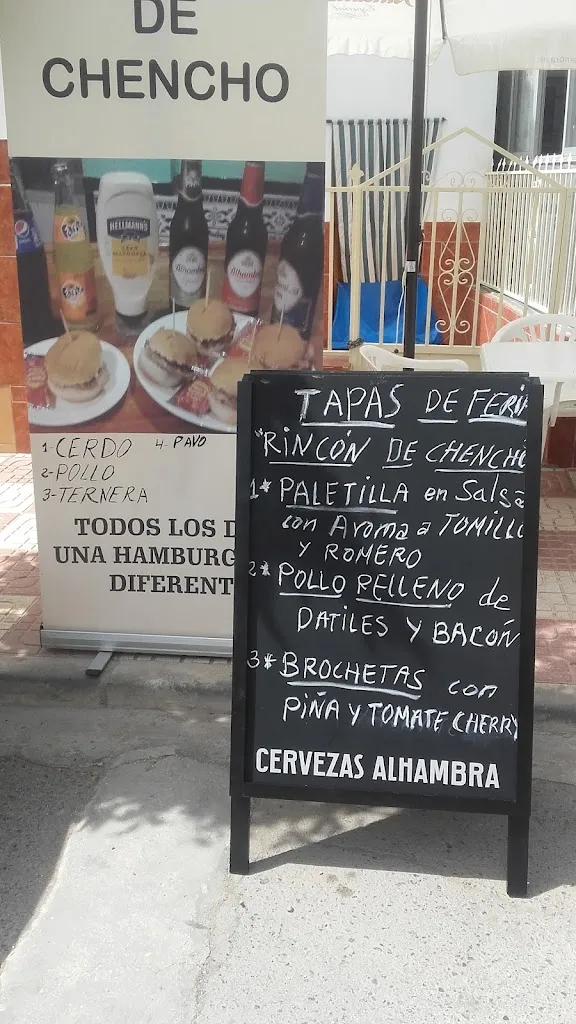 DE
CHENCHO
HELLMANN'S
Alhambra
1-CERDO 4-PAVO
2-POLLO
3-TERNERA
TODOS LOS
UNA HAMBURG
DIFERENT
TAPAS DE FERI
*RINCÓN DE CHENCHO
1* PALETILLA en Salsa
con Aroma a TOMILLO
Y ROMERO
2* POLLO RELLENO de
DATILES Y BACÓN
3* BROCHETAS con
PIÑA Y TOMATE CHERRY
CERVEZAS ALHAMBRA